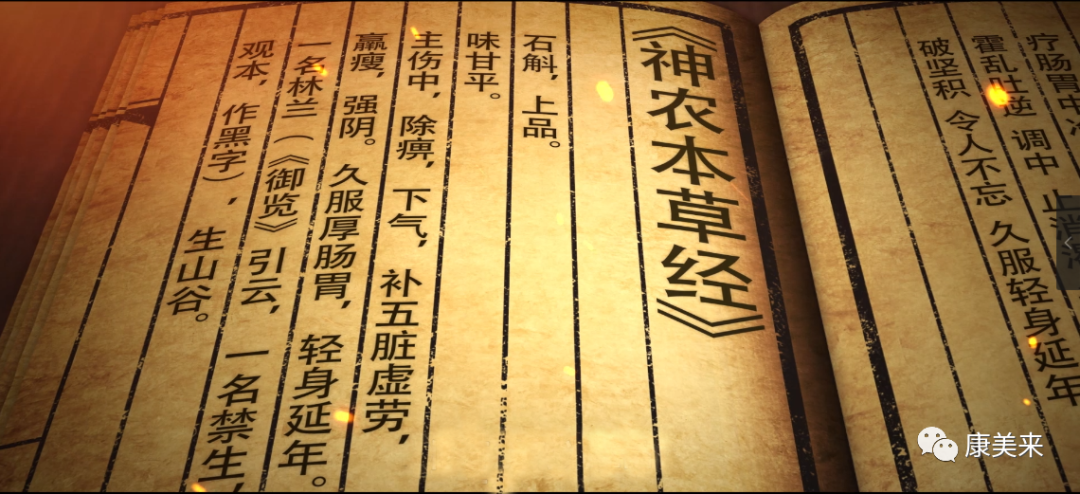 疗肠胃中冷
霍乱吐逆 调中 止消渴
久服轻身延年
破坚积 令人不忘
《神农本草经》
石斛，上品。
味甘平。
主伤中，除痹，下气，补五脏虚劳，
羸瘦，强阴。久服厚肠胃，轻身延年。
一名林兰（《御览》引云，一名禁生，
观本，作黑字），生山谷。
康美来